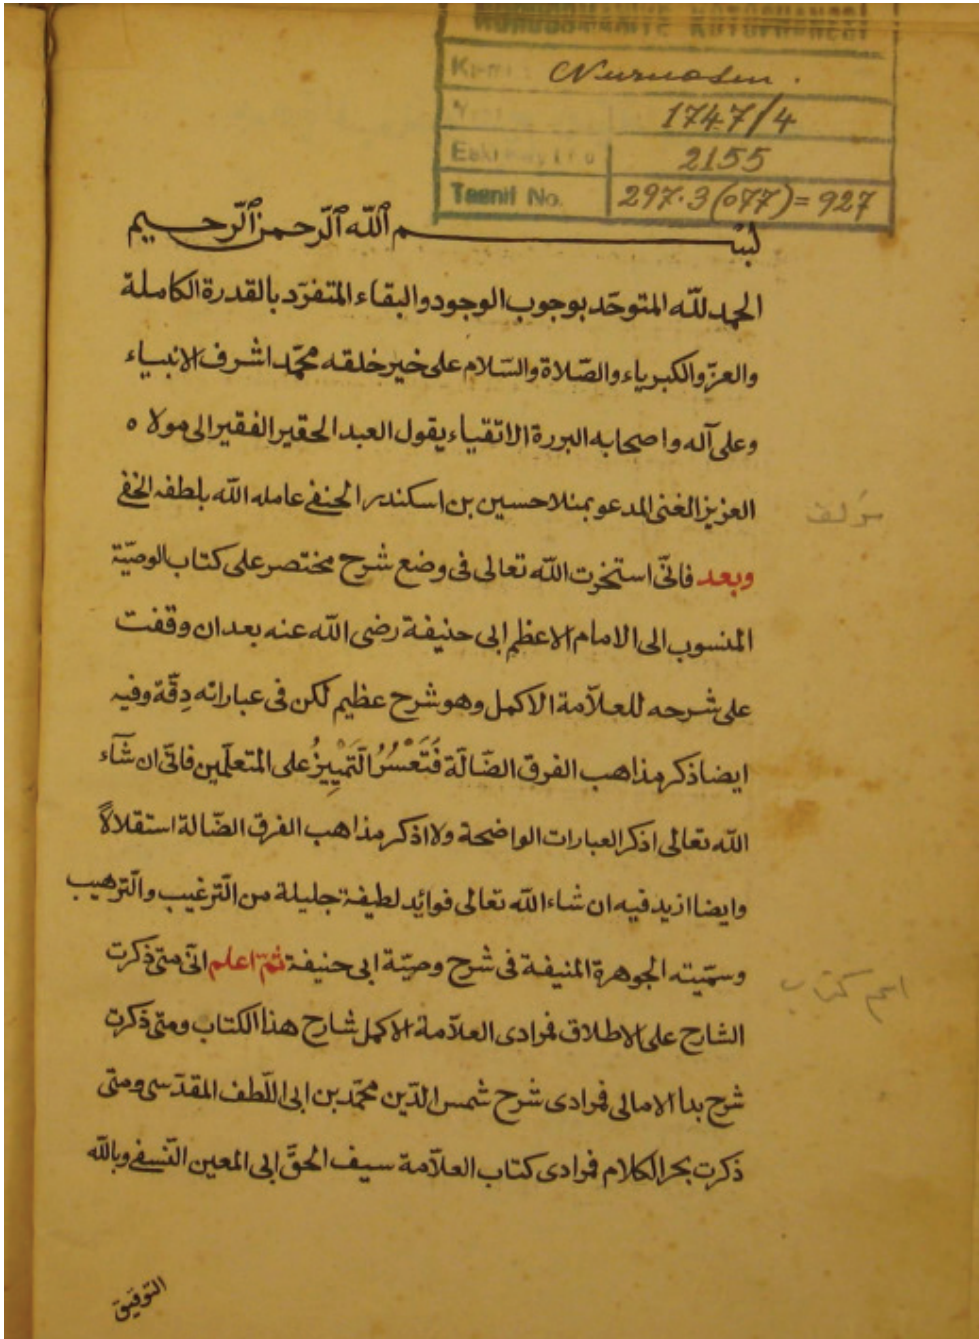 Nuruosmaniye Kütüphanesi
Kısmı : Nuruosm.
Yeni 1747/4
Eski Kayıt No 2155
Tasnif No. 297.3(077)=927
بسم الله الرحمن الرحيم
الحمد لله المتوحّد بوجوب الوجود والبقاء المتفرّد بالقدرة الكاملة
والعزّ والكبرياء والصّلاة والسّلام على خير خلقه محمّد اشرف الانبياء
وعلى آله واصحابه البررة الاتقياء يقول العبد الحقير الفقير الى مولاه
العزيز الغنى المدعو بمنلا حسين بن اسكندر الحنفى عامله الله بلطفه الخفى
مؤلف
وبعد فانّى استخرت الله تعالى فى وضع شرح مختصر على كتاب الوصيّة
المنسوب الى الامام الاعظم ابى حنيفة رضى الله عنه بعد ان وقفت
على شرحه للعلاّمة الاكمل وهو شرح عظيم لكن فى عباراته دِقّة وفيه
ايضا ذكر مذاهب الفرق الضّالّة فَتَعَسُّرُ التّمْيِيزُ على المتعلّمين فانّى ان شآء
الله تعالى اذكر العبارات الواضحة ولا اذكر مذاهب الفرق الضّالة استقلالاً
وايضا ازيد فيه ان شاء الله تعالى فوائد لطيفة جليلة من التّرغيب والتّرهيب
وسمّيته الجوهرة المنيفة فى شرح وصيّة ابى حنيفة ثمّ اعلم انّى متى ذكرت
اسم كتاب
الشارح على الاطلاق فمرادى العلاّمة الاكمل شارح هذا الكتاب ومتى ذكرت
شرح بدا الامالى فمرادى شرح شمس الدّين محمّد بن ابى اللّطف المقدّسى ومتى
ذكرت بحر الكلام فمرادى كتاب العلاّمة سيف الحقّ ابى المعين النّسفى وبالله
التوفيق